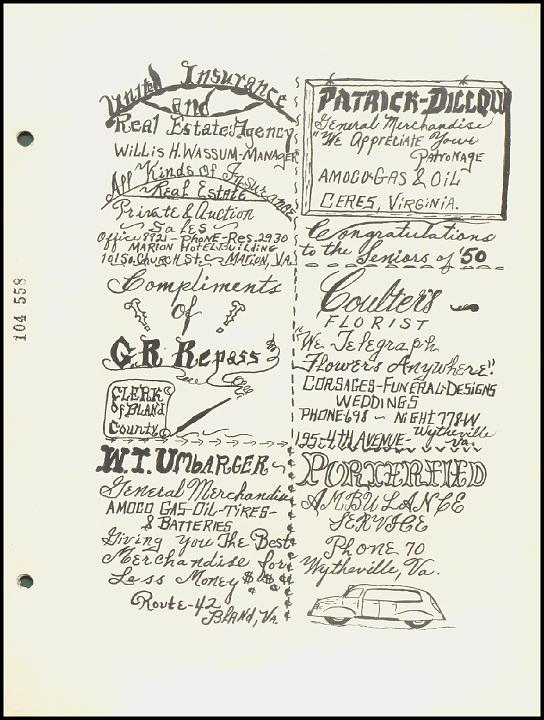 United Insurance
and
Real Estate Agency
Willis H. Wassum-Manager
All Kinds of Insurance
Real Estate
Private & Auction
Sales
Office 8921 - Phone - Res. 2930
Marion Hotel Building
101 So. Church St. Marion, Va.
Compliments
of
G.R. Repass
Clerk
of Bland
County
W.T. Umbarger
General Merchandise
Amoco Gas-Oil-Tires-
& Batteries
Giving You The Best
Merchandise for
Less Money $ $ $
Route-42
Bland, Va.
Patrick-Dillow
General Merchandise
"We Appreciate Your
Patronage
Amoco-Gas & Oil
Ceres, Virginia.
Congratulations
to the Seniors of '50
Coulter's
Florist
"We Telegraph
Flowers Anywhere".
Corsages-Funeral-Designs
Weddings
Phone-698 - Night 778-W
195-4th Avenue- Wytheville
Va.
Porterfield
Ambulance
Service
Phone 70
Wytheville, Va.
104 558